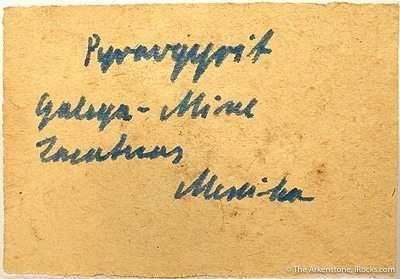 Pyrargyrit
Galega - Mine
Zacatecas
Mexiko
© The Arkenstone, iRocks.com